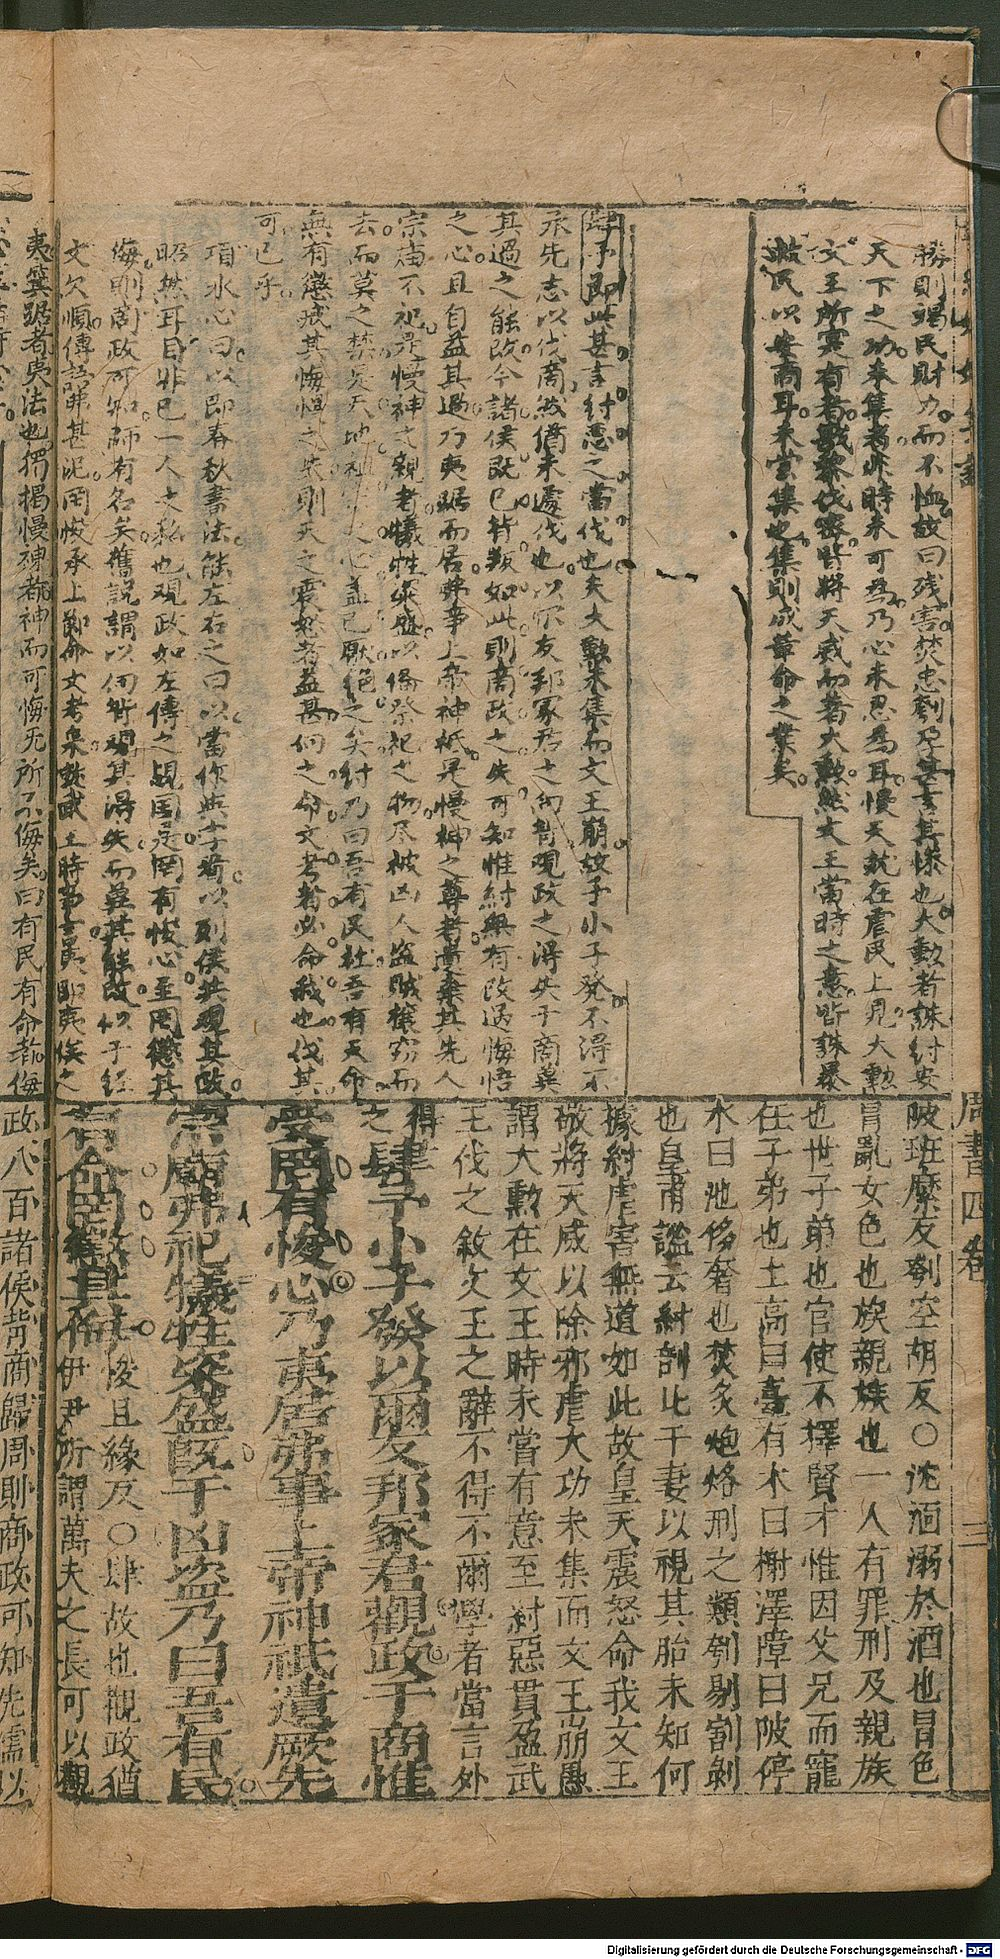 勝則竭民財力而不恤故曰残害焚忠刳孕甚言其惨也大勲者誅紂安
天下之功未集者非時未可為乃心未忍為耳慢天就在虐民上見大勲
文王所冥有者戡黎伐密皆將天威而著大勲然文王當時之意皆誅暴
救民以安商耳未嘗集也集則成革命之業矣
肆予即此甚言紂惡之當伐也夫大勲未集而文王崩故予小子發不得不
承先志以伐商然猶未遽伐也以尔友邦冢君之向背觀政之得失于商冀
其過之能改今諸侯既已皆叛如此則商政之失可知惟紂無有改過悔悟
之心且自益其過乃夷踞而居弗事上帝神祇是慢神之尊者遺棄其先人
宗庙不祀是慢神之親者犠牲粢盛以偹祭祀之物尽被凶人盜賊攘窃而
去而莫之禁是天地祖宗人心盖已厭絶之矣紂乃曰吾有民社吾有天命
無有懲戒其悔慢之失則天之震怒者益甚何之命文考者必命我也伐其
可已乎
項水心曰以即春秋書法能左右之曰以當作與字看以列侯共觀其政
昭然耳目非已一人之私也觀政如左傳之覘国是罔有悛心至罔懲其
侮則商政可知師有名矣舊說謂以何背覘其得失而冀其能改似于經
文欠順傳註弗甚泥罔悛承上即命文考來故武王時第言夷即夷俟之
夷箕踞者夷法也獨揭慢殛都神而可悔无所不侮矣曰有民有命都侮
周書四卷
三
陂班糜反刳空胡反○沈湎溺於酒也冒色
冒亂女色也族親族也一人有罪刑及親族
也世子弟也官使不擇賢才惟因父兄而寵
任子弟也土高曰臺有木曰榭澤障曰陂停
水曰池侈奢也焚炙炮烙刑之類刳剔割剝
也皇甫謐云紂剖比干妻以視其胎未知何
據紂虐害無道如此故皇天震怒命我文王
敬將天威以除邪虐大功未集而文王崩愚
謂大勲在文王時未嘗有意至紂惡貫盈武
王伐之敘文王之辭不得不爾學者當言外
得之
肆予小子發以爾友邦冢君觀政于商惟
受罔有悛心乃夷居弗事上帝神祇遺厥先
宗廟弗祀犧牲粢盛既于凶盜乃曰吾有民
有命罔懲其侮
悛且緣反○肆故也觀政猶
伊尹所謂萬夫之長可以觀
政八百諸侯背商歸周則商政可知先儒以
Digitalisierung gefördert durch die Deutsche Forschungsgemeinschaft - DFG